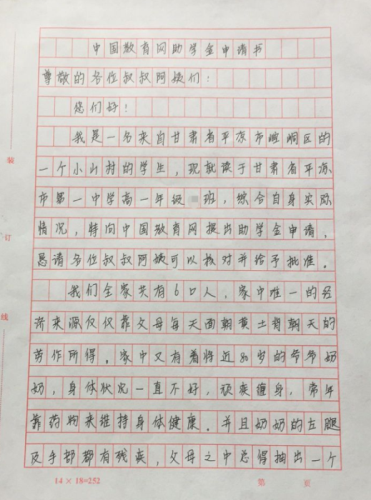 中国教育网助学金申请书
尊敬的各位叔叔阿姨们：
您们好！
我是一名来自甘肃省平凉市崆峒区的
一个小山村的学生，现就读于甘肃省平凉
市第一中学高一年级 班，综合自身实际
情况，特向中国教育网提出助学金申请，
恳请各位叔叔阿姨可以核对并给予批准。
我们全家共有6口人，家中唯一的经
济来源仅仅靠父母每天面朝黄土背朝天的
劳作所得。家中又有着将近80岁的爷爷奶
奶，身体状况一直不好，顽疾缠身，常年
靠药物来维持身体健康。并且奶奶的左腿
及手部都有残疾，父母之中总得抽出一个
14×18=252
第 页
编
订
线